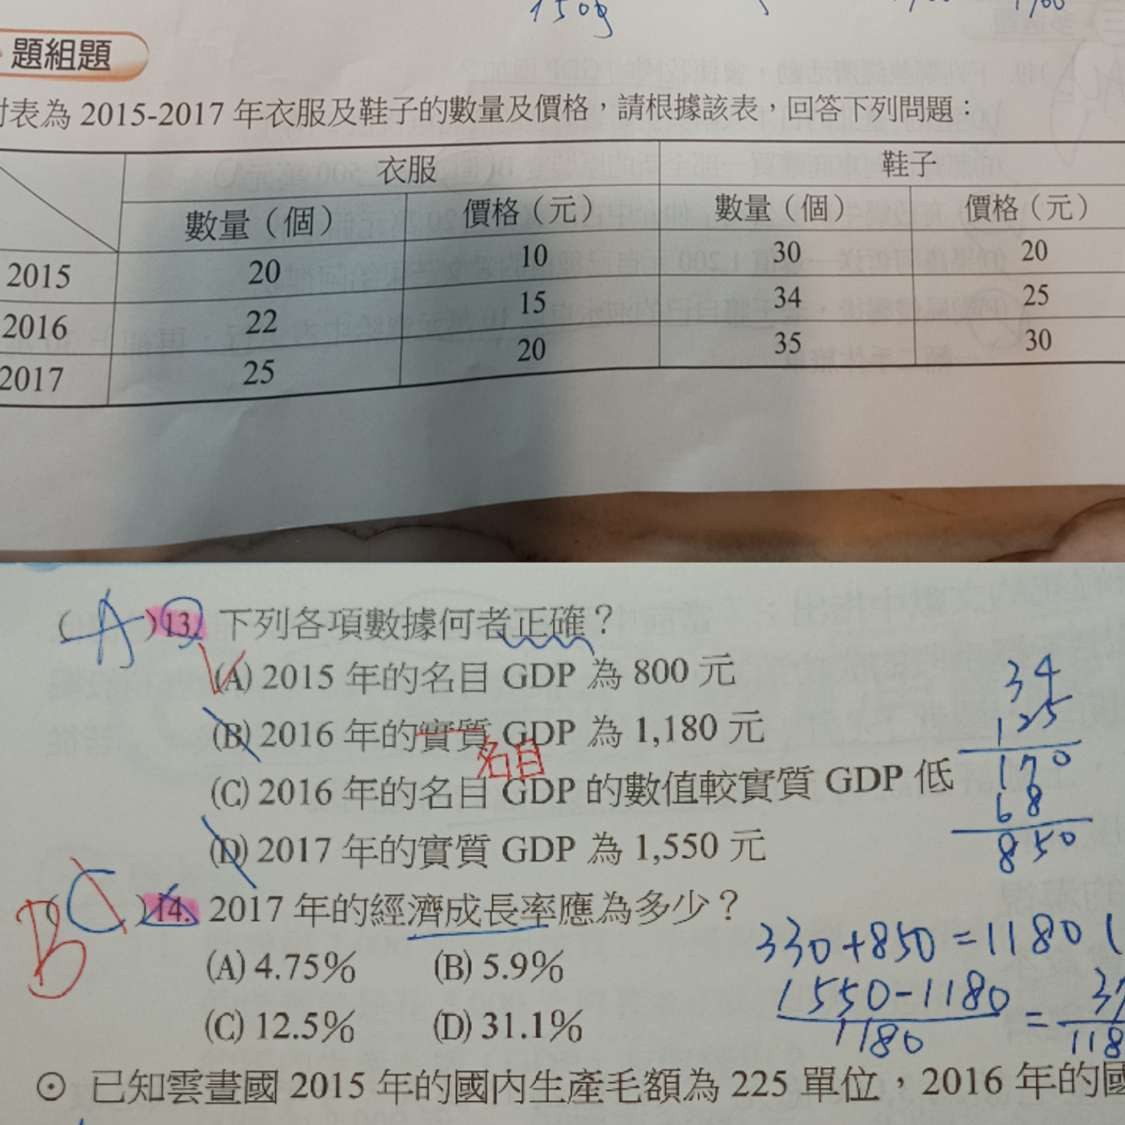 150g
題組題
附表為 2015-2017 年衣服及鞋子的數量及價格，請根據該表，回答下列問題：
衣服 鞋子
數量（個） 價格（元） 數量（個） 價格（元）
2015 20 10 30 20
2016 22 15 34 25
2017 25 20 35 30
(A)13. 下列各項數據何者正確？
(A) 2015 年的名目 GDP 為 800 元
(B) 2016 年的實質 GDP 為 1,180 元
名目
(C) 2016 年的名目 GDP 的數值較實質 GDP 低
(D) 2017 年的實質 GDP 為 1,550 元
34
125
170
68
850
B
(C)14. 2017 年的經濟成長率應為多少？
(A) 4.75% (B) 5.9%
(C) 12.5% (D) 31.1%
330+850=1180
1550-1180
1180
=
37
118
⊙ 已知雲晝國 2015 年的國內生產毛額為 225 單位，2016 年的國